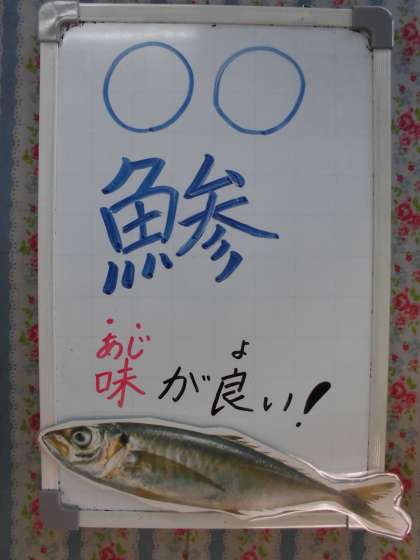 ○○
鯵
あじ よ
味が良い!